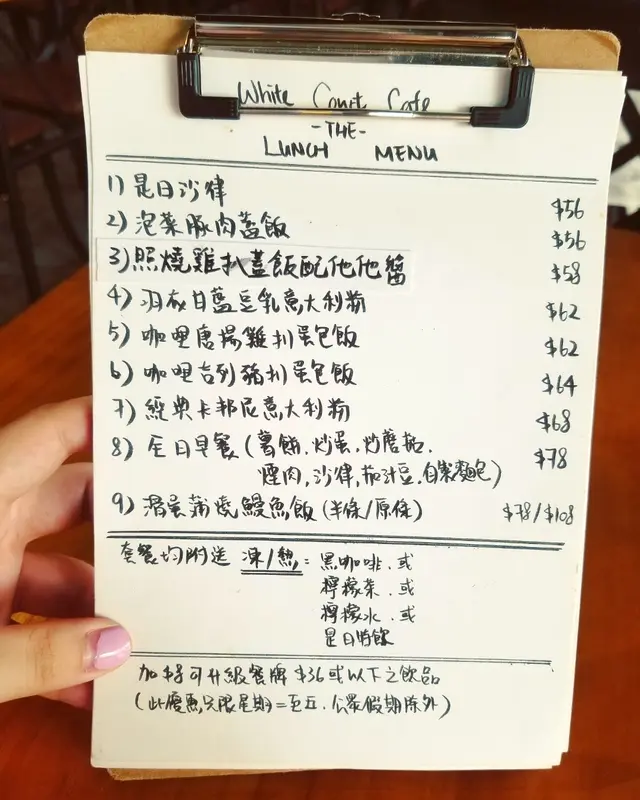 White Court Cafe
-THE-
LUNCH MENU
1) 是日沙律 $56
2) 泡菜豚肉蓋飯 $56
3) 照燒雞扒蓋飯配他他醬 $58
4) 羽衣甘藍豆乳意大利粉 $62
5) 咖哩唐揚雞扒蛋包飯 $62
6) 咖哩吉列豬扒蛋包飯 $64
7) 經典卡邦尼意大利粉 $68
8) 全日早餐 (薯餅.炒蛋.炒蘑菇. $78
煙肉,沙律,茄汁豆.自家麵包)
9) 滑蛋蒲燒鰻魚飯 (半條/原條) $78/$108
套餐均附送 凍/熱: 黑咖啡.或
檸檬茶.或
檸檬水.或
是日特飲
加 $8 可升級餐牌 $36 或以下之飲品
(此優惠只限星期二至五.公眾假期除外)